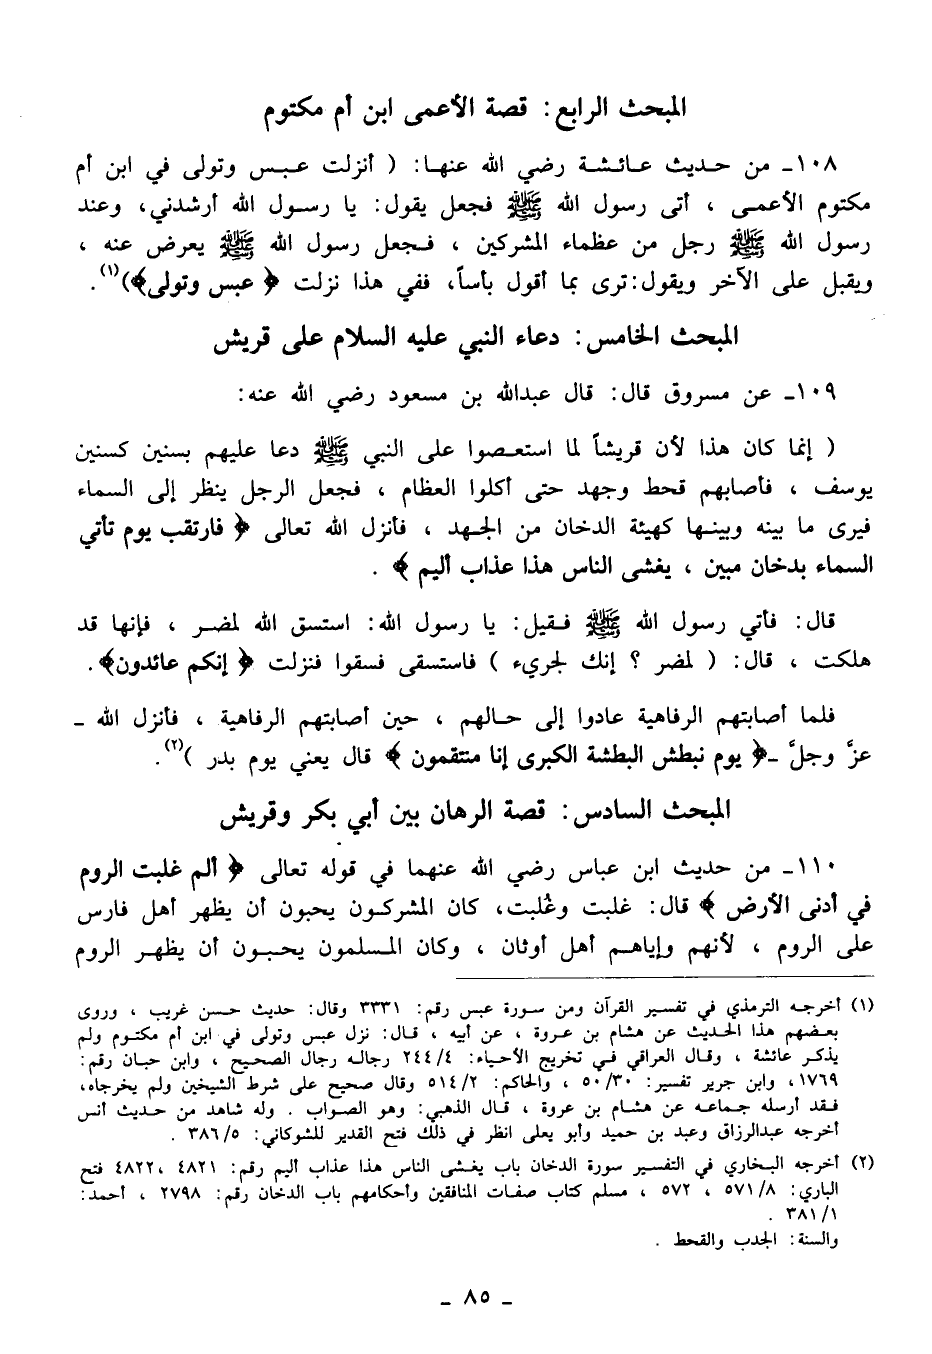 المبحث الرابع: قصة الأعمى ابن أم مكتوم
١٠٨ـ من حديث عائشة رضي الله عنها: ( أنزلت عبس وتولى في ابن أم
مكتوم الأعمى ، أتى رسول الله ﷺ فجعل يقول: يا رسول الله أرشدني، وعند
رسول الله ﷺ رجل من عظماء المشركين ، فجعل رسول الله ﷺ يعرض عنه ،
ويقبل على الآخر ويقول:ترى بما أقول بأساً، ففي هذا نزلت ﴿ عبس وتولى﴾)(١).
المبحث الخامس: دعاء النبي عليه السلام على قريش
١٠٩ـ عن مسروق قال: قال عبدالله بن مسعود رضي الله عنه:
( إنما كان هذا لأن قريشاً لما استعصوا على النبي ﷺ دعا عليهم بسنين كسنين
يوسف ، فأصابهم قحط وجهد حتى أكلوا العظام ، فجعل الرجل ينظر إلى السماء
فيرى ما بينه وبينها كهيئة الدخان من الجهد ، فأنزل الله تعالى ﴿ فارتقب يوم تأتي
السماء بدخان مبين ، يغشى الناس هذا عذاب أليم ﴾ .
قال: فأتي رسول الله ﷺ فقيل: يا رسول الله: استسق الله لمضر ، فإنها قد
هلكت ، قال: ( لمضر ؟ إنك لجريء ) فاستسقى فسقوا فنزلت ﴿ إنكم عائدون﴾.
فلما أصابتهم الرفاهية عادوا إلى حالهم ، حين أصابتهم الرفاهية ، فأنزل الله ـ
عزَّ وجلَّ ـ﴿ يوم نبطش البطشة الكبرى إنا منتقمون ﴾ قال يعني يوم بدر )(٢).
المبحث السادس: قصة الرهان بين أبي بكر وقريش
١١٠ـ من حديث ابن عباس رضي الله عنهما في قوله تعالى ﴿ ألم غلبت الروم
في أدنى الأرض ﴾ قال: غلبت وغُلبت، كان المشركون يحبون أن يظهر أهل فارس
على الروم ، لأنهم وإياهم أهل أوثان ، وكان المسلمون يحبون أن يظهر الروم
(١) أخرجه الترمذي في تفسير القرآن ومن سورة عبس رقم: ٣٣٣١ وقال: حديث حسن غريب ، وروى
بعضهم هذا الحديث عن هشام بن عروة ، عن أبيه ، قال: نزل عبس وتولى في ابن أم مكتوم ولم
يذكر عائشة ، وقال العراقي في تخريج الأحياء: ٢٤٤/٤ رجاله رجال الصحيح ، وابن حبان رقم:
١٧٦٩، وابن جرير تفسير: ٥٠/٣٠ ، والحاكم: ٥١٤/٢ وقال صحيح على شرط الشيخين ولم يخرجاه،
فقد أرسله جماعه عن هشام بن عروة ، قال الذهبي: وهو الصواب . وله شاهد من حديث أنس
أخرجه عبدالرزاق وعبد بن حميد وأبو يعلى انظر في ذلك فتح القدير للشوكاني: ٣٨٦/٥ .
(٢) أخرجه البخاري في التفسير سورة الدخان باب يغشى الناس هذا عذاب أليم رقم: ٤٨٢١ ،٤٨٢٢ فتح
الباري: ٥٧١/٨ ، ٥٧٢ ، مسلم كتاب صفات المنافقين وأحكامهم باب الدخان رقم: ٢٧٩٨ ، أحمد:
٣٨١/١ .
والسنة: الجدب والقحط .
ـ ٨٥ ـ